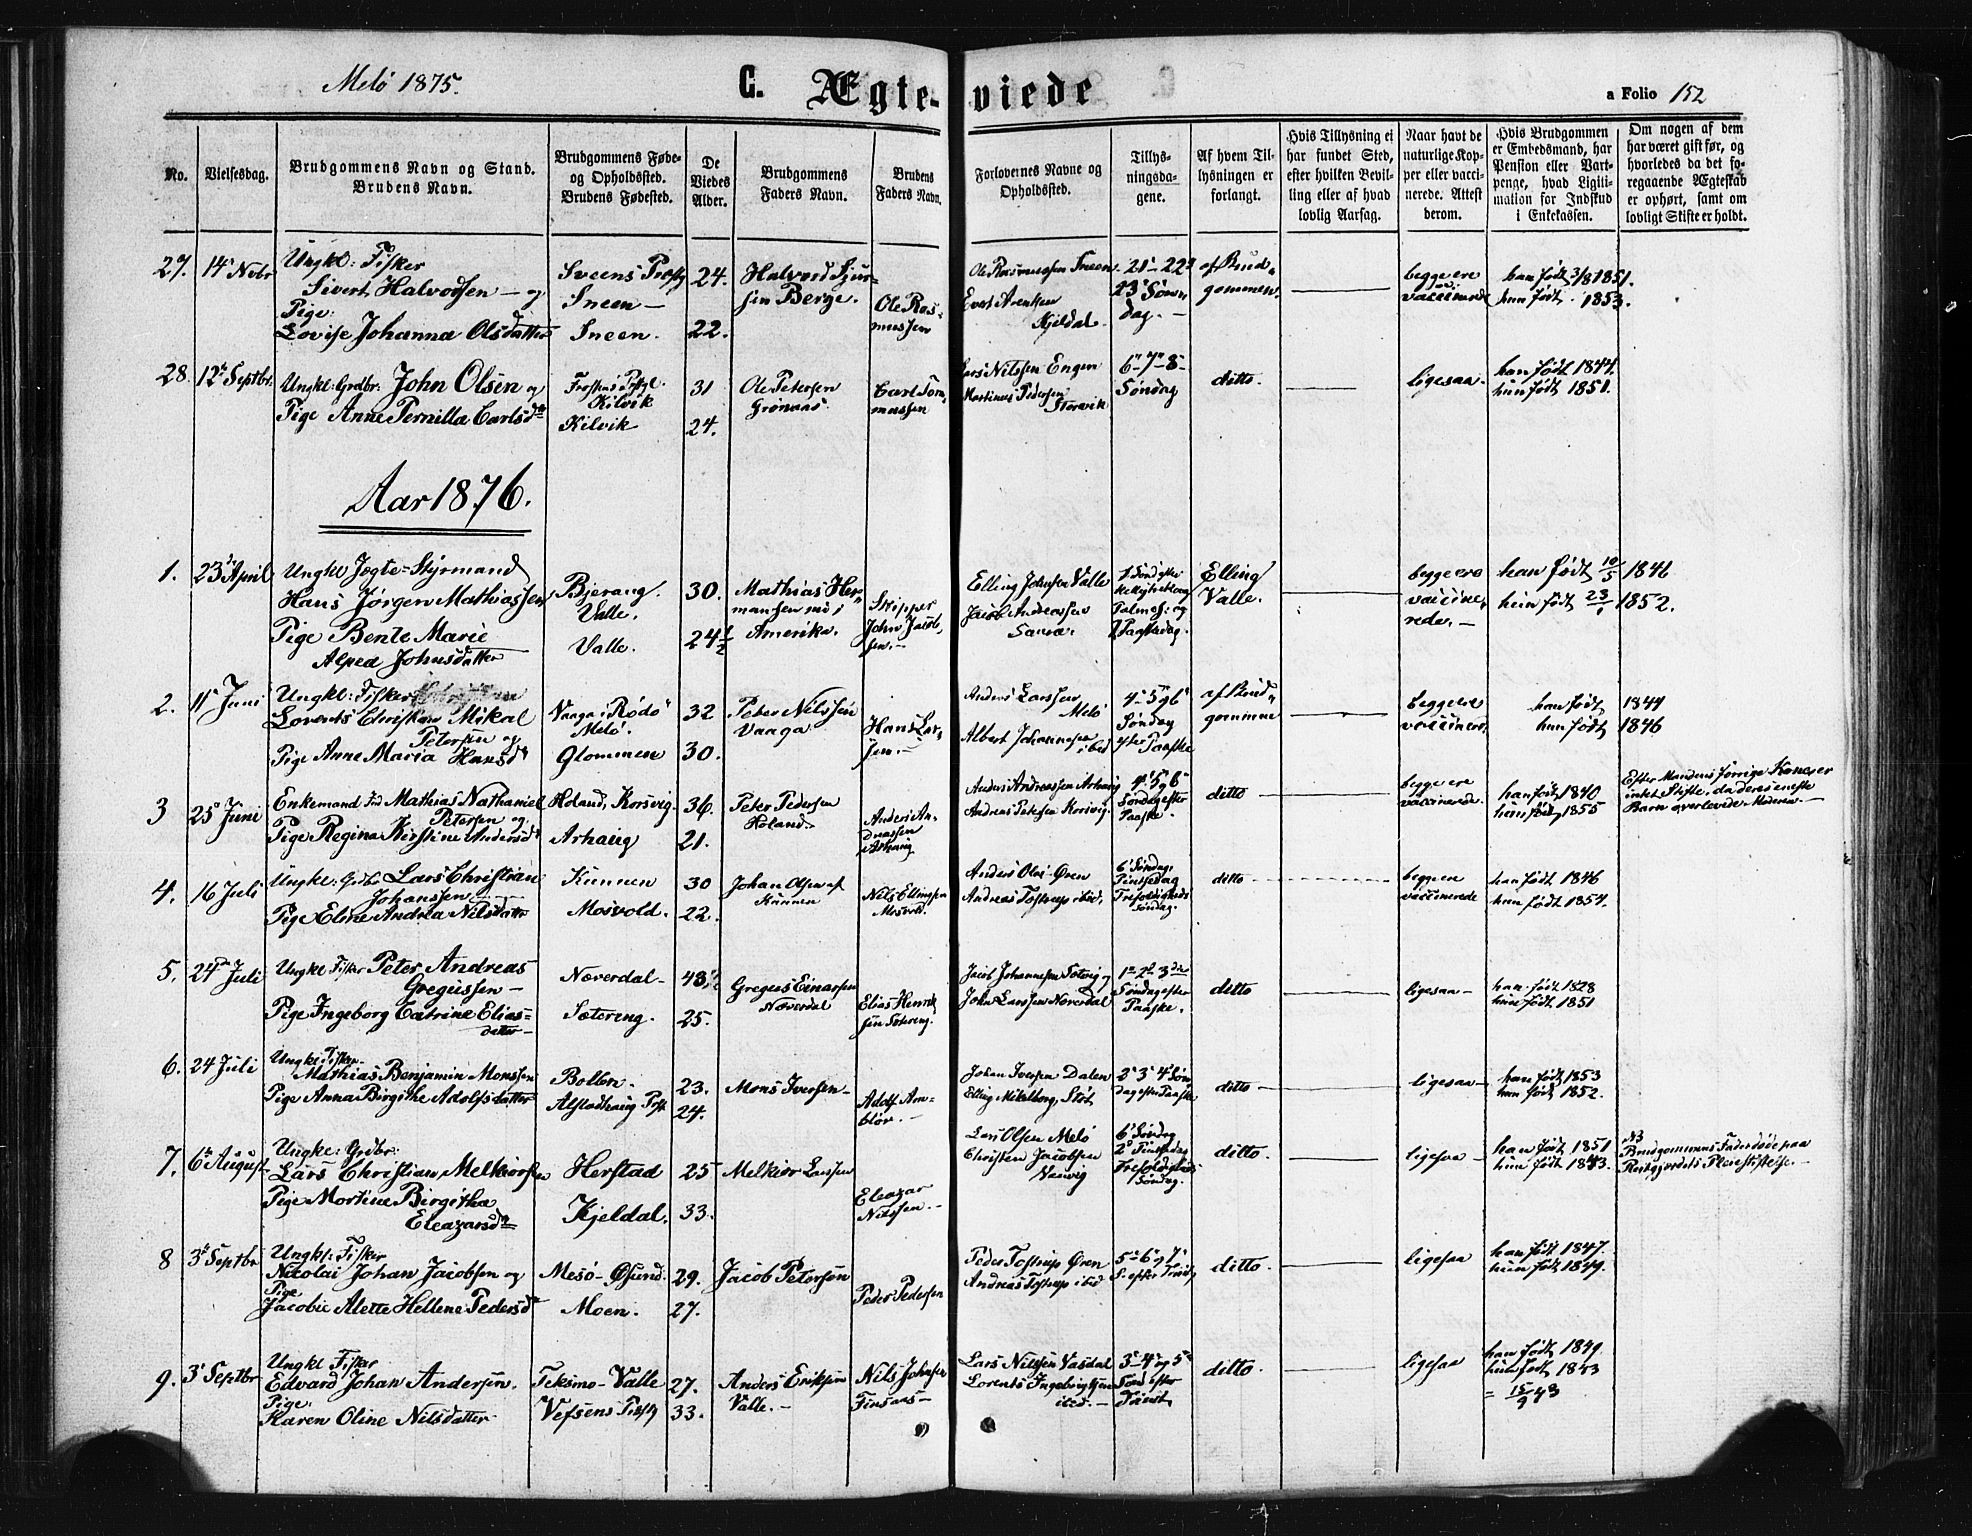 Melö 1875.
C. Ægteviede
a Folio 152
No.
Vielsesdag.
Brudgommens Navn og Stand.
Brudens Navn.
Brudgommens Føde-
og Opholdssted.
Brudens Fødested.
De
Viedes
Alder.
Brudgommens
Faders Navn.
Brudens
Faders Navn.
Forlovernes Navne og
Opholdssted.
Tillys-
ningsda-
gene.
Af hvem Til-
lysningen er
forlangt.
Hvis Tillysning ei
har fundet Sted,
efter hvilken Bevil-
ling eller af hvad
lovlig Aarsag.
Naar havt de
naturlige Kop-
per eller vacci-
nerede. Attest
derom.
Hvis Brudgommen
er Embedsmand, har
Pension eller Vart-
penge, hvad Ligiti-
mation for Indskud
i Enkekassen.
Om nogen af dem
har været gift før, og
hvorledes da det fo-
regaaende Ægteskab
er ophørt, samt om
lovligt Skifte er holdt.
27. 14de Novbr
Ungkl: Fisker
Sivert Halvorsen – og
Pige:
Lovise Johanna Olsdatter
Sveens Præstg
Sneen –
Sneen.
24.
22.
Halvord Sjur-
sen Berge.
Ole Ras-
mussen
Ole Rasmussen Sneen.
Evert Arentsen
Kjeldal.
21-22-
23 Sønn-
dag. –
af Brud-
gommen.
begge ere
vaccinerede
han født 3/8 1851.
hun født 1853.
28. 12te Septbr.
Ungkl: Grdbr: John Olsen og
Pige Anne Pernilla Carlsdr
Kilvik
Kilvik
31
24.
Ole Petersen
Grönaas.
Carl Tom-
massen
Lars Nilssen Engen
Martinus Pedersen
Storvik
6-7-8-
Søndag
ditto.
ligesaa.
han født 1844.
hun født 1851.
Aar 1876.
1. 23de April
Ungkl Jægte-Styrmand
Hans Jörgen Mathiassen
Pige Bente Marie
Alped Johnsdatter
Bjerang.
Valle.
Valle.
30.
24½
Mathias Her-
mansen nu i
Amerika.
Skipper
John Jacob-
sen. –
Elling Johnsen Valle
Jacob Andreassen
Palmes: og
Paaskedag.
Elling
Valle.
begge ere
vaccine-
rede. –
han født 10/5 1846
hun født 23/1 1852.
2. 11te Juni
Ungkl: Fisker
Lorents Christian Mikal
Petersen og
Pige Anne Maria Hansdr
Vaaga i Rødø
Melö.
Glommen
32
30.
Peter Nilssen
Vaaga
Hans Lar-
sen. –
Anders Larssen
Melö
Albert Johannesen
ibid
4-5 og 6
Søndag
efter Paaske
af Brud-
gommen
begge ere
vaccinerede
han født 1844
hun født 1846
3 25de Juni
Enkemand Mathias Nathaniel
Petersen og
Pige Regina Kirstine Andersdr
Holand, Korsvig.
Arhaug
36.
21.
Peter Pedersen
Holand.
Anders An-
dreassen
Arhaug
Anders Andreassen Arhaug
Andreas Petersen Korsvig.
4 5 og 6
Søndag efter
Paaske.
ditto
begge ere
vaccinerede.
han født 1840
hun født 1855
Efter Mandens forrige Kone er
intet Skifte, da deres eneste
Barn overlevede Moderen. –
4. 16 Juli
Ungkl: Grdbr Lars Christian
Johanssen
Pige Eline Andrea Nilsdatter
Kunnen
Mosvold.
30
22.
Johan Olsen af
Kunnen
Nils Ellingsen
Mosvold.
Anders Olsen Øren
Andreas Tostrup ibid.
6 Søndag,
Pintsedag
Trefoldigheds
Søndag.
ditto
begge ere
vaccinerede
han født 1846
hun født 1854.
5. 24de Juli
Ungkl Fisker Peter Andreas
Gregussen –
Pige Ingeborg Catrine Elias-
datter –
Næverdal –
Sætereng.
48½
25.
Gregus Einarsen
Næverdal
Elias Henrik-
sen Sætereng.
Jacob Johannesen Setvig og
John Larssen Næverdal
1- 2- 3die
Søndag efter
Paaske.
ditto
ligesaa –
han født 1828
hun født 1851
6. 24 Juli
Ungkl Fisker
Mathias Benjamin Monssen
Pige Anna Birgithe Adolfsdatter
Bolten.
Alstadhaug Præst.
23.
24.
Mons Iversen –
Adolf Am-
blov. –
Johan Iversen Dalen
Elling Mikelborg, Støt
2 3 4 Søn
dag efter Paaske
ditto –
ligesaa –
han født 1853
hun født 1852.
7. 6te August
Ungkl: Grdbr:
Lars Christian Melkiorsen
Pige Mortine Birgitha
Eleazarsdr
Herstad
Kjeldal.
25
33.
Melkior Larssen
Eleazar
Nilssen. –
Lars Olsen Melö
Christen Jacobsen
Vasvig
6 Søndag
2 Pintsedag
Trefoldigheds
Søndag.
ditto.
ligesaa –
han født 1851
hun født 1843.
NB
Brudgommens Fader døde paa
Rostgjerdets Pleiestiftelse. –
8 3de Septbr
Ungkl: Fisker
Nicolai Johan Jacobsen og
Pige
Jacobie Alette Hellene Pedersdr
Mesö – Øsund.
Moen.
29.
27.
Jacob Petersen
Peder Pedersen
Peder Tostrup Øren
Andreas Tostrup ibid
5- 6 og 7
S. efter Trinit
ditto.
ligesaa
han født 1847.
hun født 1849.
9. 3de Septbr
Ungkl Fisker
Edvard Johan Andersen.
Pige:
Karen Oline Nilsdatter.
Teksmo – Valle
Vefsens Præstg
27.
33.
Anders Eriksen
Valle. –
Nils Johnsen
Finsaas –
Lars Nilssen Vasdal
Lorents Ingebrigtsen
ibid. –
3- 4 og 5
Sønd efter
Trinit
ditto.
ligesaa
han født 1849.
hun født 1843
= 15/9 43